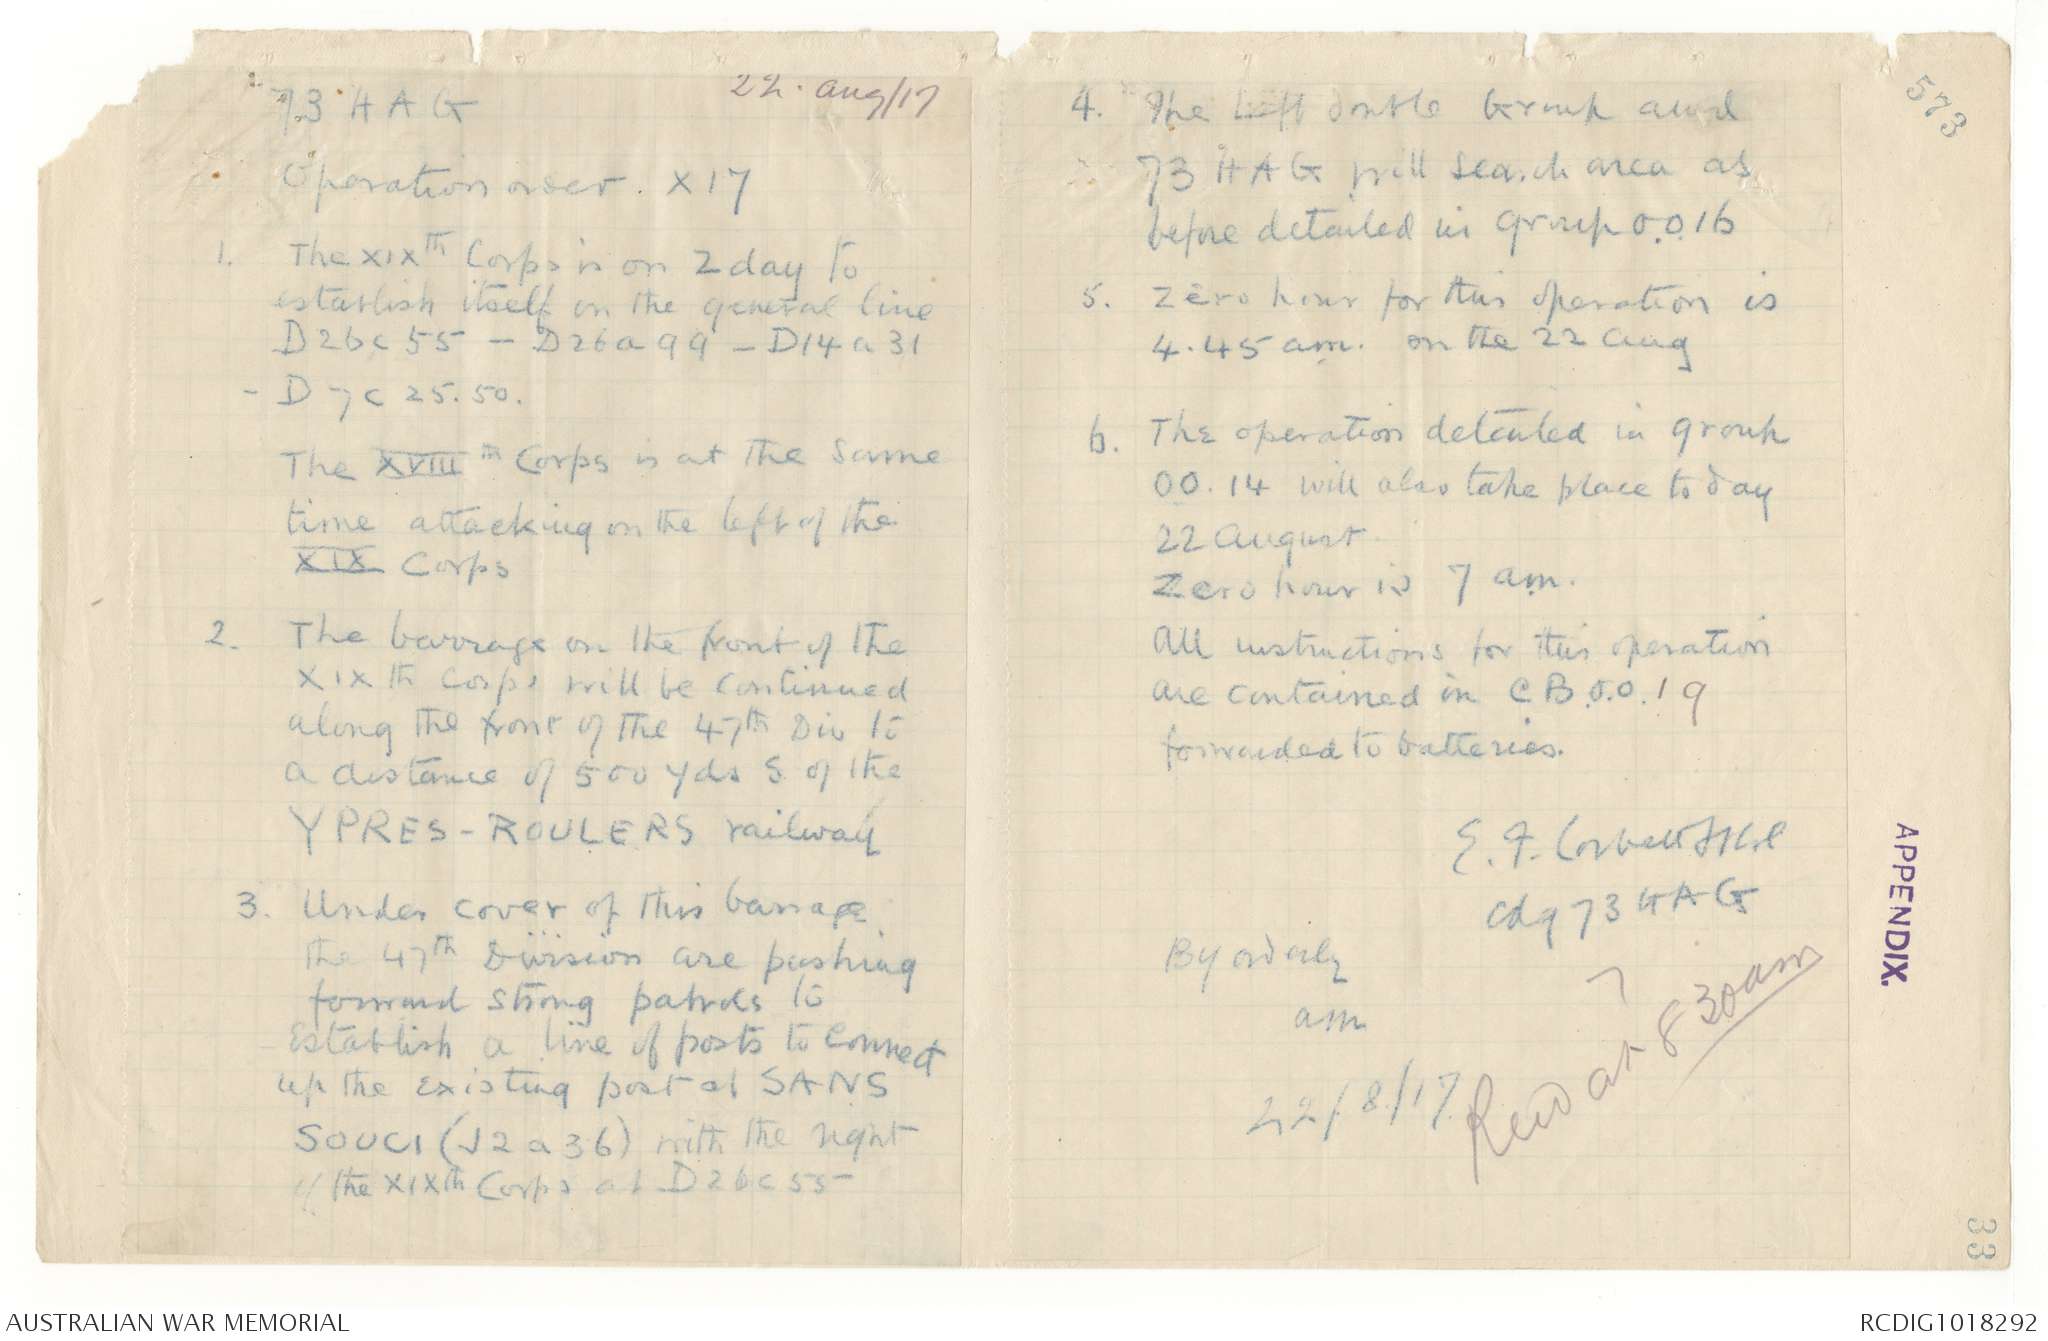 22. Aug/17
73 HAG
Operation order. X17
1. The XIXth Corps is on Z day to
establish itself on the general line
D26c55 - D26a99 - D14a31
- D7c 25.50.
The XVIIIth Corps is at the same
time attacking on the left of the
XIX Corps
2. The barrage on the front of the
XIXth Corps will be continued
along the front of the 47th Div to
a distance of 500 yds S of the
YPRES-ROULERS railway
3. Under cover of this barrage
the 47th Division are pushing
forward strong patrols to
Establish a line of posts to connect
up the existing post at SANS
SOUCI (J2a36) with the right
of the XIXth Corps at D26c55
4. The left double Group and
73 HAG will search area as
before detailed in group O.O.16
5. Zero hour for this operation is
4.45 am. on the 22 Aug
6. The operation detailed in group
OO.14 will also take place to day
22 August
Zero hour is 7 am.
All instructions for this operation
are contained in C B O.O. 19
forwarded to batteries.
E. F. Corbett
Cdg 73 HAG
By orderly
7
am
22/8/17
Recd at 8 30 am
573
APPENDIX.
33
AUSTRALIAN WAR MEMORIAL
RCDIG1018292